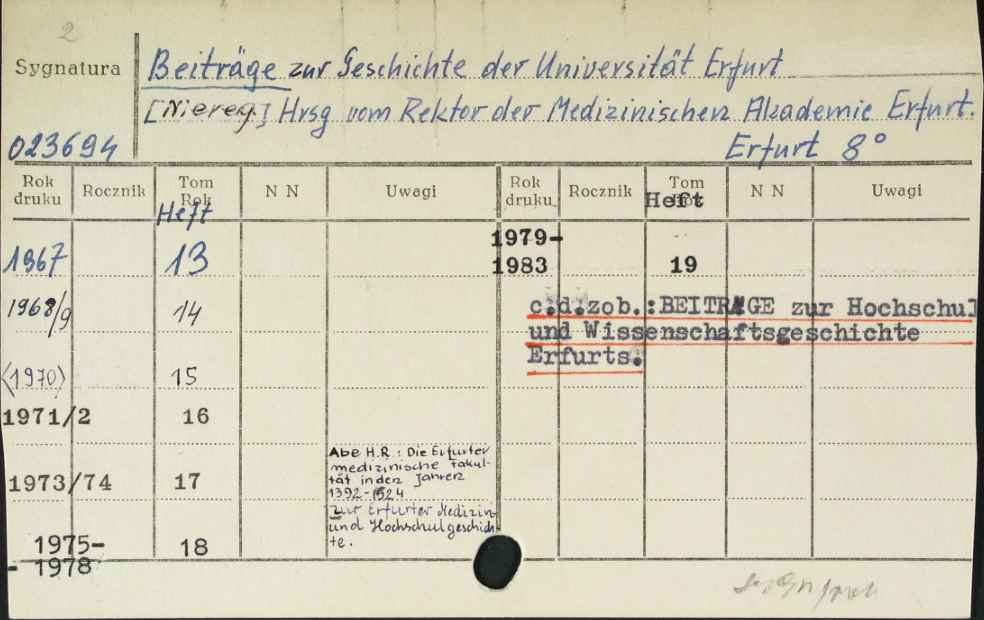 2
Sygnatura
Beiträge zur Geschichte der Universität Erfurt
[Niereg.] Hrsg vom Rektor der Medizinischen Akademie Erfurt.
023694
Erfurt 8°
Rok druku Rocznik Tom Rok N N Uwagi Rok druku Rocznik Tom N N Uwagi
Heft Heft
1967 13
1979-
1983 19
1968/9 14
c.d.zob.:BEITRÄGE zur Hochschul
und Wissenschaftsgeschichte
Erfurts.
(1970) 15
1971/2 16
1973/74 17
Abe H.R.: Die Erfurter
medizinische Fakul-
tät in den Jahren
1392-1524
zur Erfurter Medizin-
und Hochschulgeschich-
te.
1975-
- 1978 18